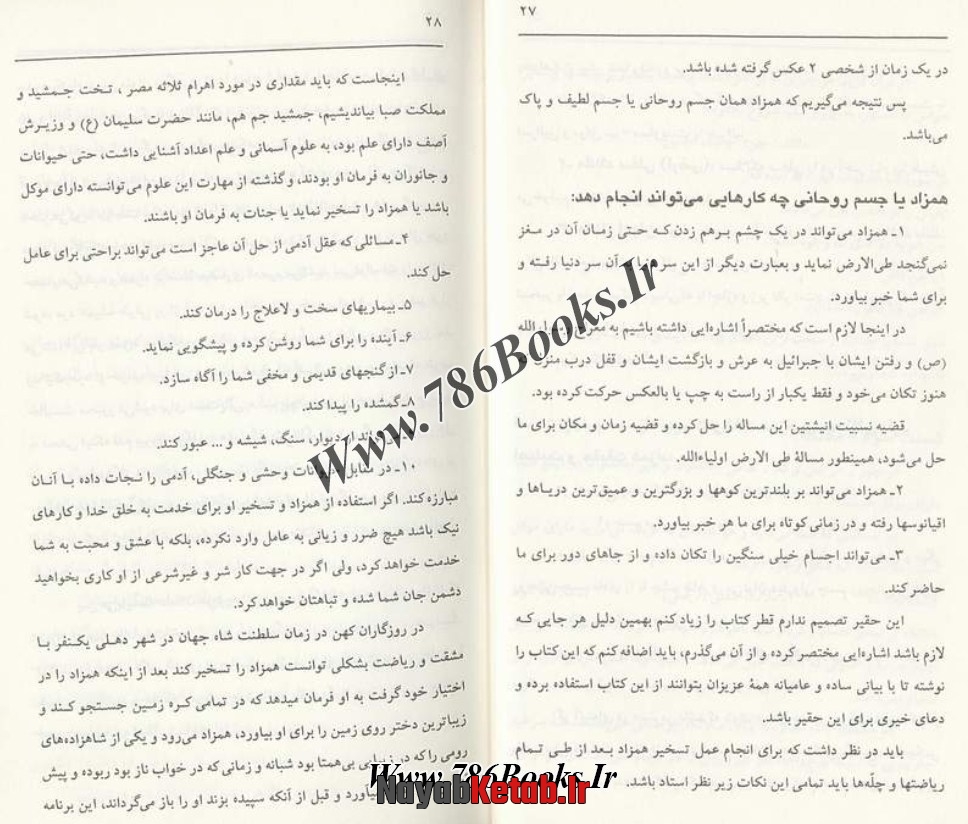 ۲۷
در یک زمان از شخصی ۲ عکس گرفته شده باشد.
پس نتیجه می‌گیریم که همزاد همان جسم روحانی یا جسم لطیف و پاک
می‌باشد.
همزاد یا جسم روحانی چه کارهایی می‌تواند انجام دهد:
۱ـ همزاد می‌تواند در یک چشم برهم زدن که حتی زمان آن در مغز
نمی‌گنجد طی‌الارض نماید و بعبارت دیگر از این سر دنیا به آن سر دنیا رفته و
برای شما خبر بیاورد.
در اینجا لازم است که مختصراً اشاره‌ایی داشته باشیم به معراج رسول‌الله
(ص) و رفتن ایشان با جبرائیل به عرش و بازگشت ایشان و قفل درب منزل که
هنوز تکان می‌خود و فقط یکبار از راست به چپ یا بالعکس حرکت کرده بود.
قضیه نسبیت انیشتین این مساله را حل کرده و قضیه زمان و مکان برای ما
حل می‌شود، همینطور مسالهٔ طی الارض اولیاءالله.
۲ـ همزاد می‌تواند بر بلندترین کوهها و بزرگترین و عمیق‌ترین دریاها و
اقیانوسها رفته و در زمانی کوتاه برای ما هر خبر بیاورد.
۳ـ می‌تواند اجسام خیلی سنگین را تکان داده و از جاهای دور برای ما
حاضر کند.
این حقیر تصمیم ندارم قطر کتاب را زیاد کنم بهمین دلیل هر جایی که
لازم باشد اشاره‌ایی مختصر کرده و از آن می‌گذرم، باید اضافه کنم که این کتاب را
نوشته تا با بیانی ساده و عامیانه همهٔ عزیزان بتوانند از این کتاب استفاده برده و
دعای خیری برای این حقیر باشد.
باید در نظر داشت که برای انجام عمل تسخیر همزاد بعد از طی تمام
ریاضتها و چلّه‌ها باید تمامی این نکات زیر نظر استاد باشد.
۲۸
اینجاست که باید مقداری در مورد اهرام ثلاثه مصر، تخت جمشید و
مملکت صبا بیاندیشیم، جمشید جم هم، مانند حضرت سلیمان (ع) و وزیرش
آصف دارای علم بود، به علوم آسمانی و علم اعداد آشنایی داشت، حتی حیوانات
و جانوران به فرمان او بودند، و گذشته از مهارت این علوم می‌توانسته دارای موکل
باشد یا همزاد را تسخیر نماید یا جنات به فرمان او باشند.
۴ـ مسائلی که عقل آدمی از حل آن عاجز است می‌تواند براحتی برای عامل
حل کند.
۵ـ بیماریهای سخت و لاعلاج را درمان کند.
۶ـ آینده را برای شما روشن کرده و پیشگویی نماید.
۷ـ از گنجهای قدیمی و مخفی شما را آگاه سازد.
۸ـ گمشده را پیدا کند.
از دیوار، سنگ، شیشه و ... عبور کند.
۱۰ـ در مقابل حیوانات وحشی و جنگلی، آدمی را نجات داده با آنان
مبارزه کند. اگر استفاده از همزاد و تسخیر او برای خدمت به خلق خدا و کارهای
نیک باشد هیچ ضرر و زیانی به عامل وارد نکرده، بلکه با عشق و محبت به شما
خدمت خواهد کرد، ولی اگر در جهت کار شر و غیرشرعی از او کاری بخواهید
دشمن جان شما شده و تباهتان خواهد کرد.
در روزگاران کهن در زمان سلطنت شاه جهان در شهر دهلی یکنفر با
مشقت و ریاضت بشکلی توانست همزاد را تسخیر کند بعد از اینکه همزاد را در
اختیار خود گرفت به او فرمان میدهد که در تمامی کره زمین جستجو کند و
زیباترین دختر روی زمین را برای او بیاورد، همزاد می‌رود و یکی از شاهزاده‌های
رومی را که در زیبایی بی‌همتا بود شبانه و زمانی که در خواب ناز بود ربوده و پیش
میآورد و قبل از آنکه سپیده بزند او را باز می‌گرداند، این برنامه
Www.786Books.Ir
Www.786Books.Ir
NayabKetab.ir